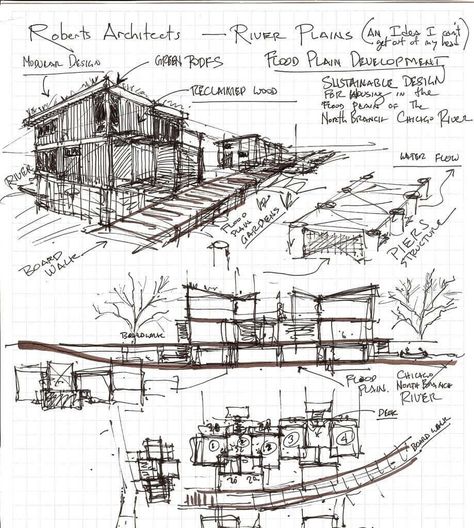 Roberts Architects — River Plains (An Idea I can't
get out of my head)
Modular Design
Green Roofs
Flood Plain Development
Reclaimed Wood
Sustainable Design
for Housing in the
Flood Plains of the
North Branch Chicago River
Water Flow
River
Board
Walk
Flood
Plain
Gardens
Piers
Structure
Boardwalk
Flood
Plain.
Chicago
North Branch
River
Deck
Board Walk
1
2
3
4
20